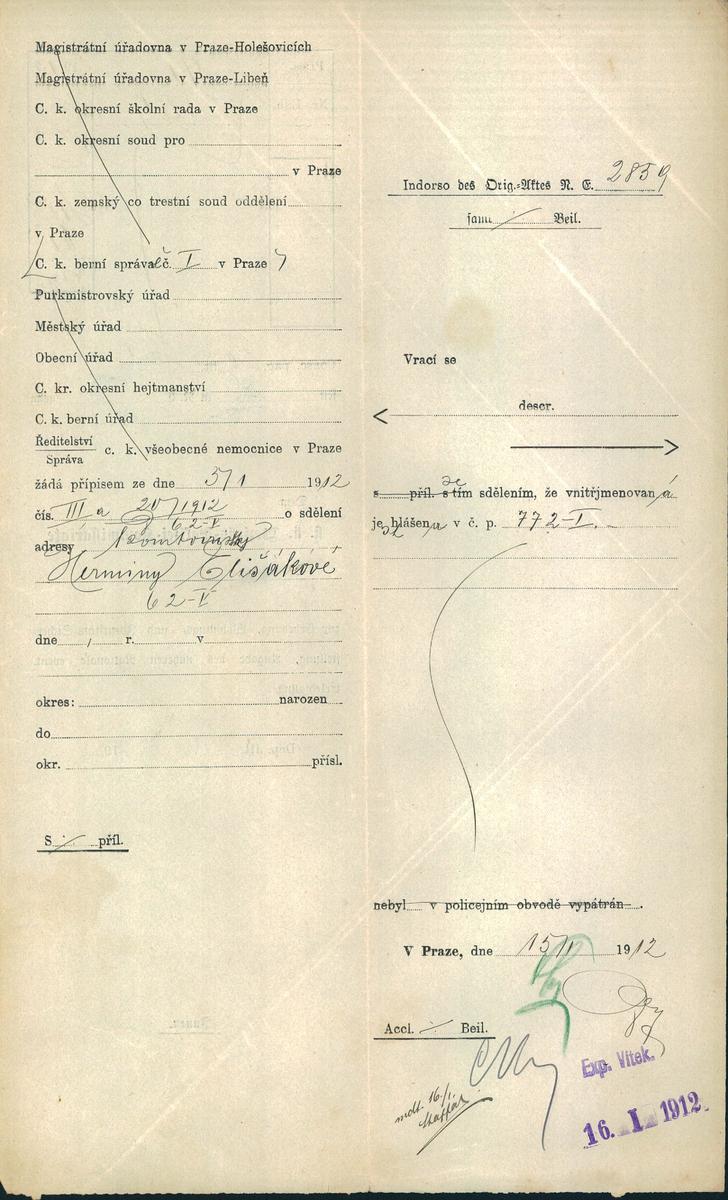 Magistrátní úřadovna v Praze-Holešovicích
Magistrátní úřadovna v Praze-Libeň
C. k. okresní školní rada v Praze
C. k. okresní soud pro
v Praze
C. k. zemský co trestní soud oddělení
v Praze
C. k. berní správa č. I v Praze
Purkmistrovský úřad
Městský úřad
Obecní úřad
C. kr. okresní hejtmanství
C. k. berní úřad
Ředitelství
Správa
c. k. všeobecné nemocnice v Praze
žádá přípisem ze dne 5/1 1912
čís. III a 20/1912 o sdělení
62-V
adresy
Herminy Elišákové
62-V
dne r. v
okres: narozen
do
okr. přísl.
S ./. příl.
Indorso des Orig.-Aktes N. E. 2859
samt ./. Beil.
Vrací se
descr.
s příl. s tím sdělením, že vnitřjmenovaná
je hlášena v č. p. 772-I.
nebyl v policejním obvodě vypátrán .
V Praze, dne 15/1 1912
Accl. ./. Beil.
mdt. 16./1.
Exp. Vítek.
16. I. 1912.